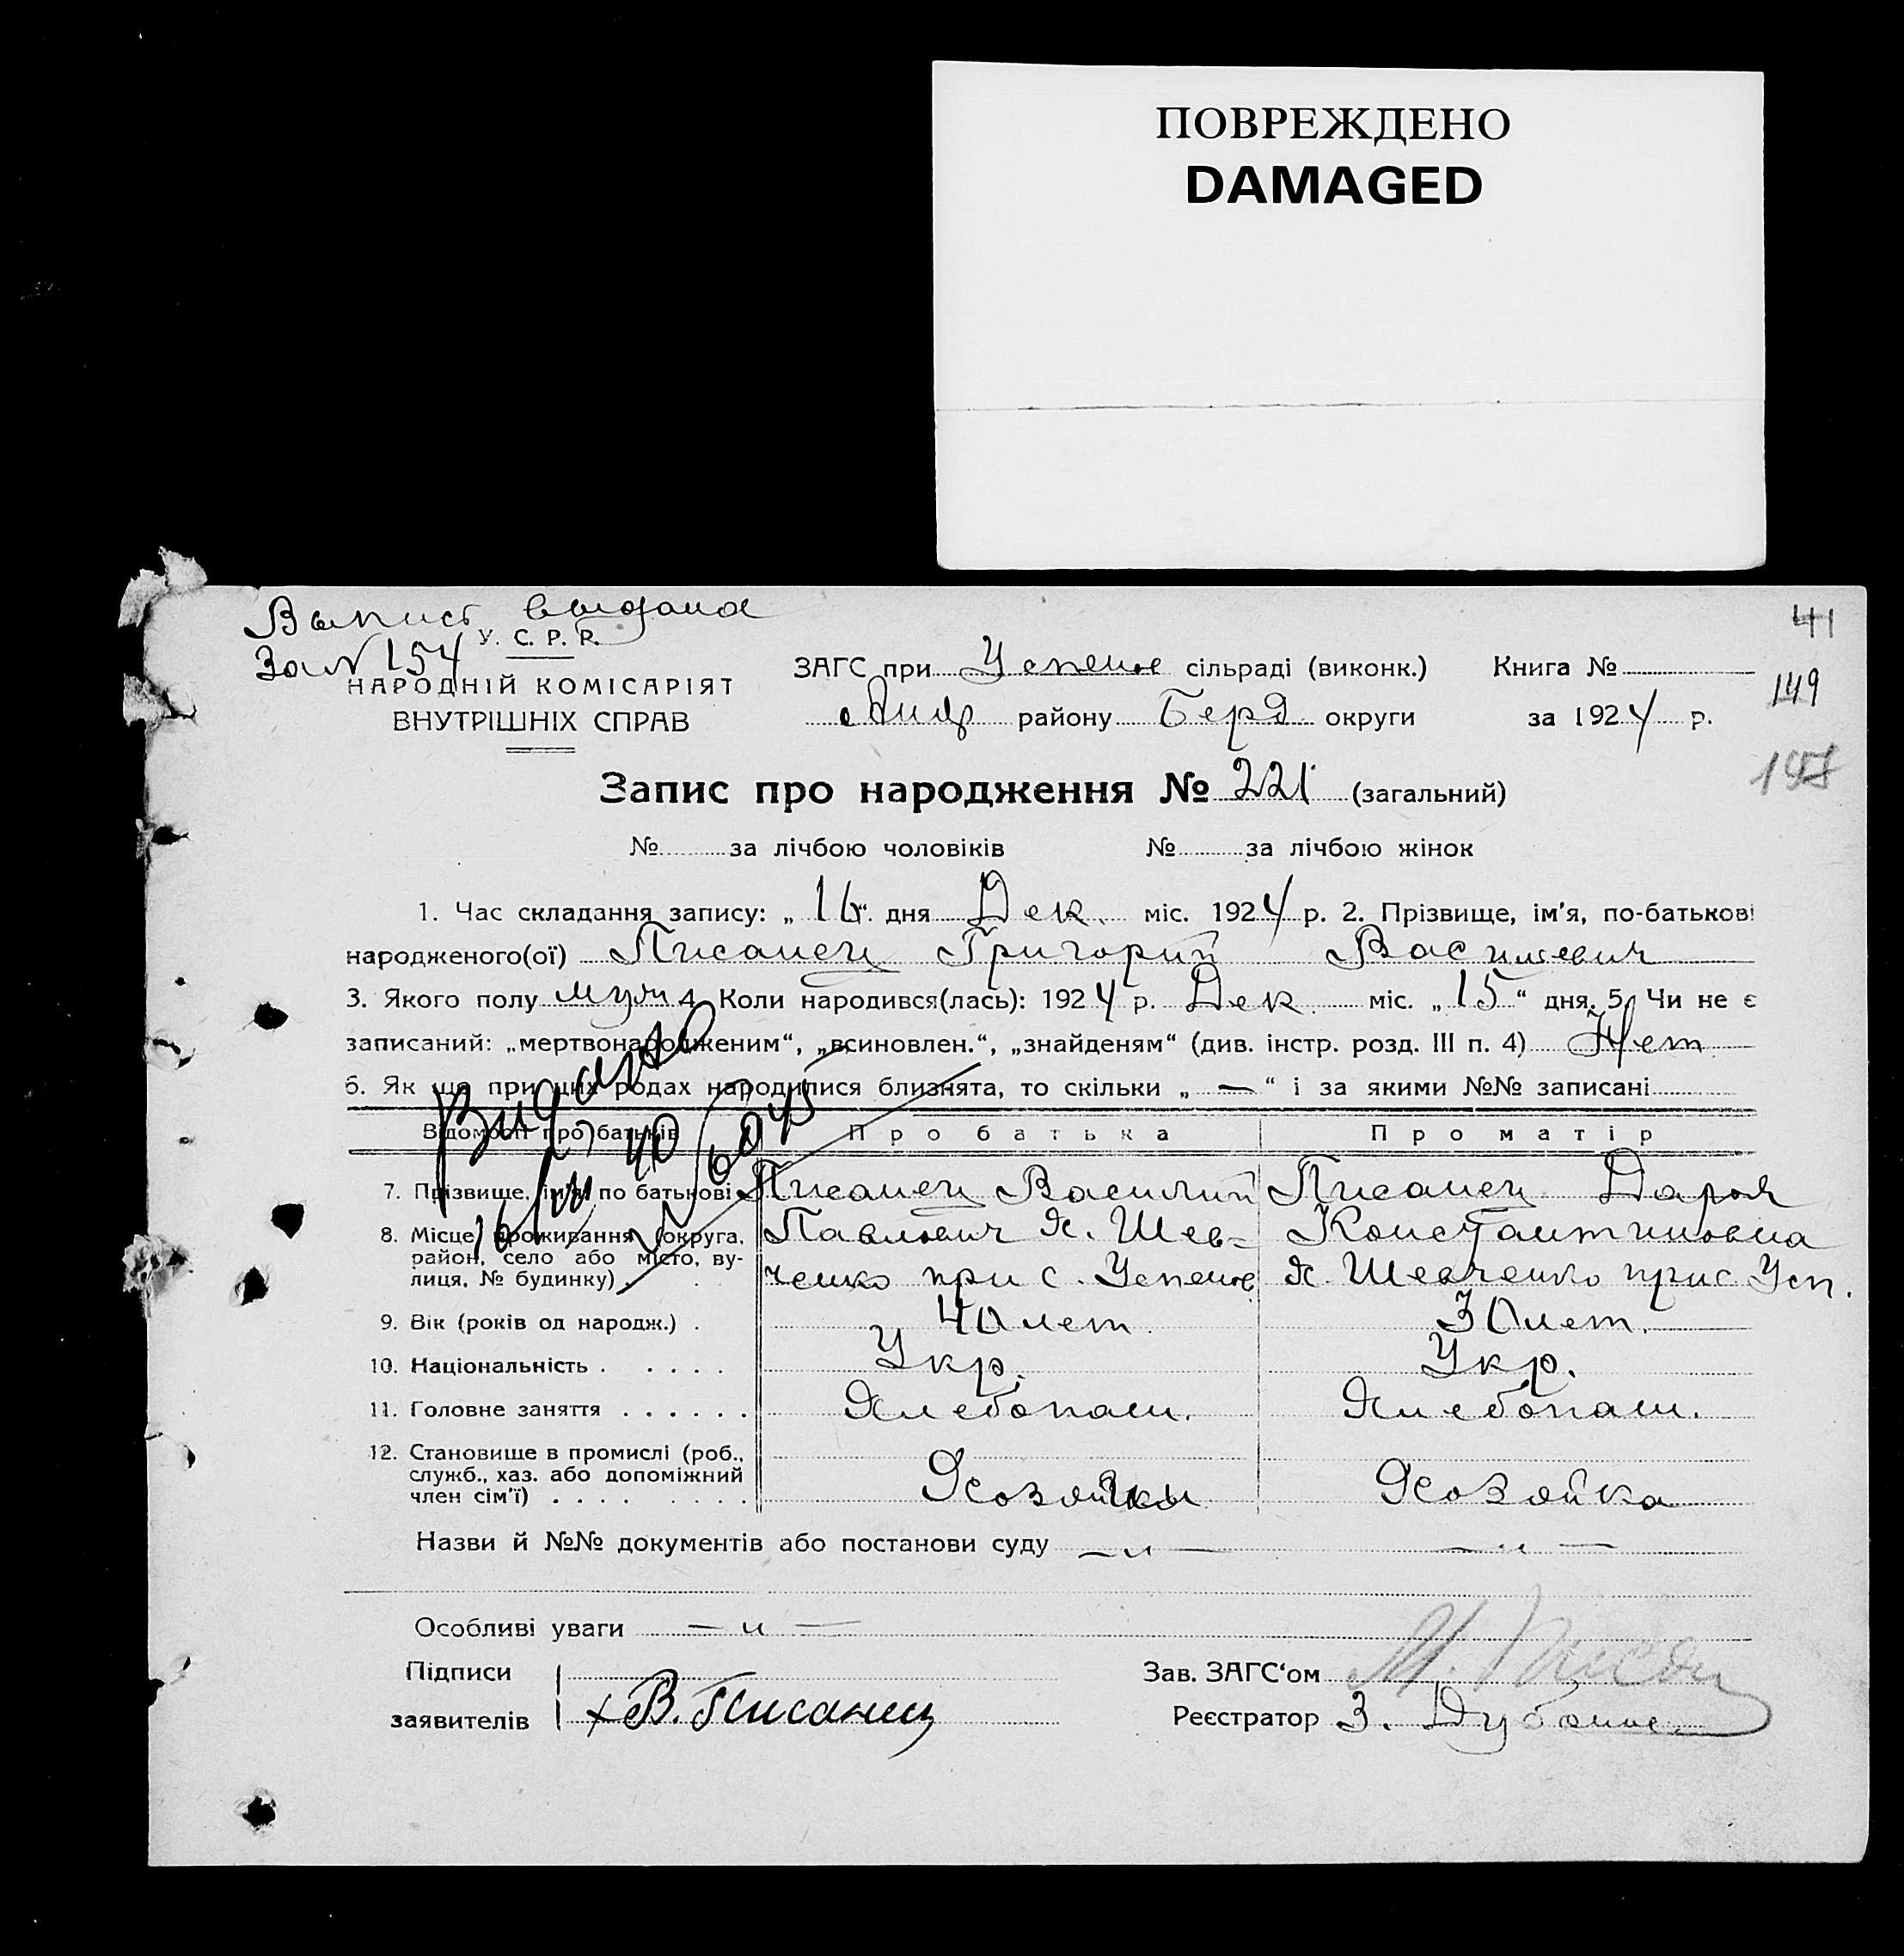 ПОВРЕЖДЕНО
DAMAGED
Выпись выдана
За № 154
У. С. Р. Р.
НАРОДНІЙ КОМІСАРІЯТ
ВНУТРІШНІХ СПРАВ
ЗАГС при Успенов сільраді (виконк.) Книга №
Андр району Берд округи за 1924 р.
41
149
Запис про народження № 221 (загальний)
№ за лічбою чоловіків № за лічбою жінок
1. Час складання запису: „16“ дня Дек. міс. 1924 р. 2. Прізвище, ім'я, по-батькові
народженого(ої) Писанец Григорий Василевич
3. Якого полу муж 4. Коли народився(лась): 1924 р. Дек. міс. „15“ дня. 5. Чи не є
записаний: „мертвонародженим“, „всиновлен.“, „знайденям“ (див. інстр. розд. III п. 4) Нет
6. Як що при цих родах народилися близнята, то скільки „ — “ і за якими №№ записані
Видано
Відомості про батьків Про батька Про матір
7. Прізвище, ім'я, по батькові Писанец Василий Писанец Дарья
8. Місце проживання (округа, район, село або місто, вулиця, № будинку) Павлович Х. Шев- Константиновна
ченко при с. Успенов Х. Шевченко при с Усп.
9. Вік (років од народж.) . 40 лет. 30 лет.
10. Національність . . . . . Укр. Укр.
11. Головне заняття . . . . . . Хлебопаш. Хлебопаш.
12. Становище в промислі (роб.,
служб., хаз. або допоміжний
член сім'ї) . . . . . . . . Хозяйка
Назви й №№ документів або постанови суду — „ — — „ —
Особливі уваги — „ —
Підписи
заявителів х В. Писанец
Зав. ЗАГС‘ом
Реєстратор З.